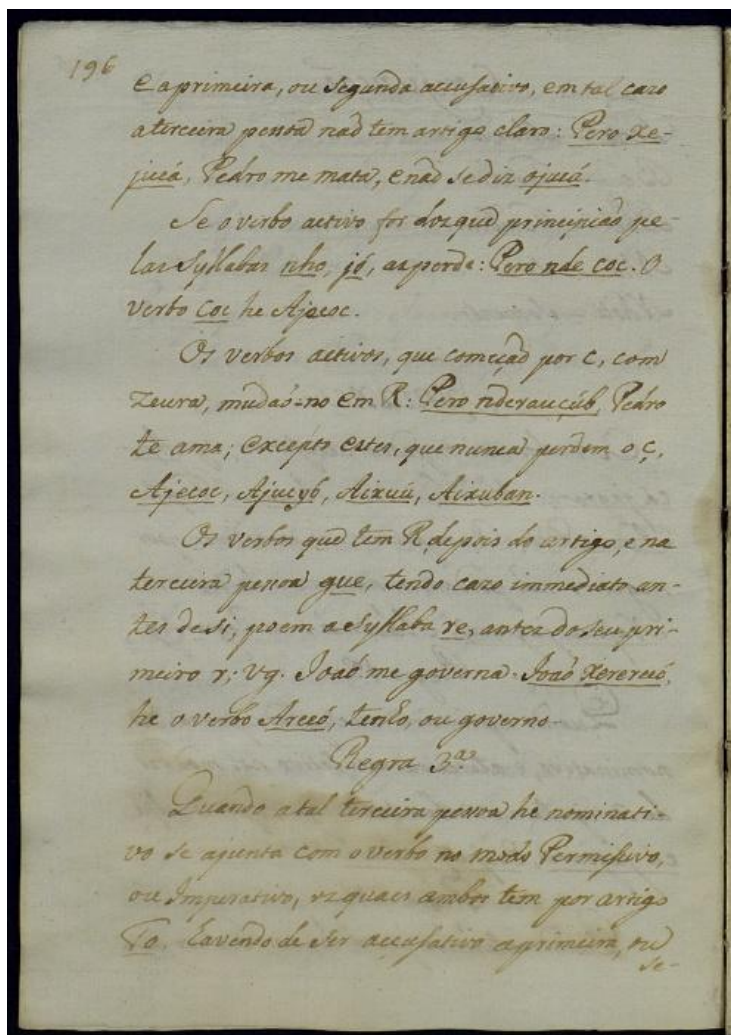 196
e a primeira, ou segunda accusativo, em tal cazo
a terceira pessoa naõ tem artigo claro: Pero xe-
jucá, Pedro me mata, e naõ se diz ojucá.
Se o verbo activo for dos que principiaõ pe-
las syllabas nho, jó, as perde: Pero nde coc. O
verbo Coc he Ajecoc.
Os verbos activos, que começaõ por c, com
zeura, mudaõ-no em R: Pero nderauçúb, Pedro
te ama; excepto estes, que nunca perdem o ç,
Ajecoc, Ajucyb, Aixuú, Aixuban.
Os verbos que tem R, depois do artigo, e na
terceira pessoa gue, tendo cazo immediato an-
tes de si, poem a syllaba re, antes do seu pri-
meiro r; vg. Joaõ me governa. Joaõ Xererecó,
he o verbo Arecó, tenho, ou governo.
Regra 3.ª
Quando a tal terceira pessoa he nominati-
vo se ajunta com o verbo no modo Permissivo,
ou Imperativo, os quaes ambos tem por artigo
To. E avendo de ser accusativo a primeira, ou
se-